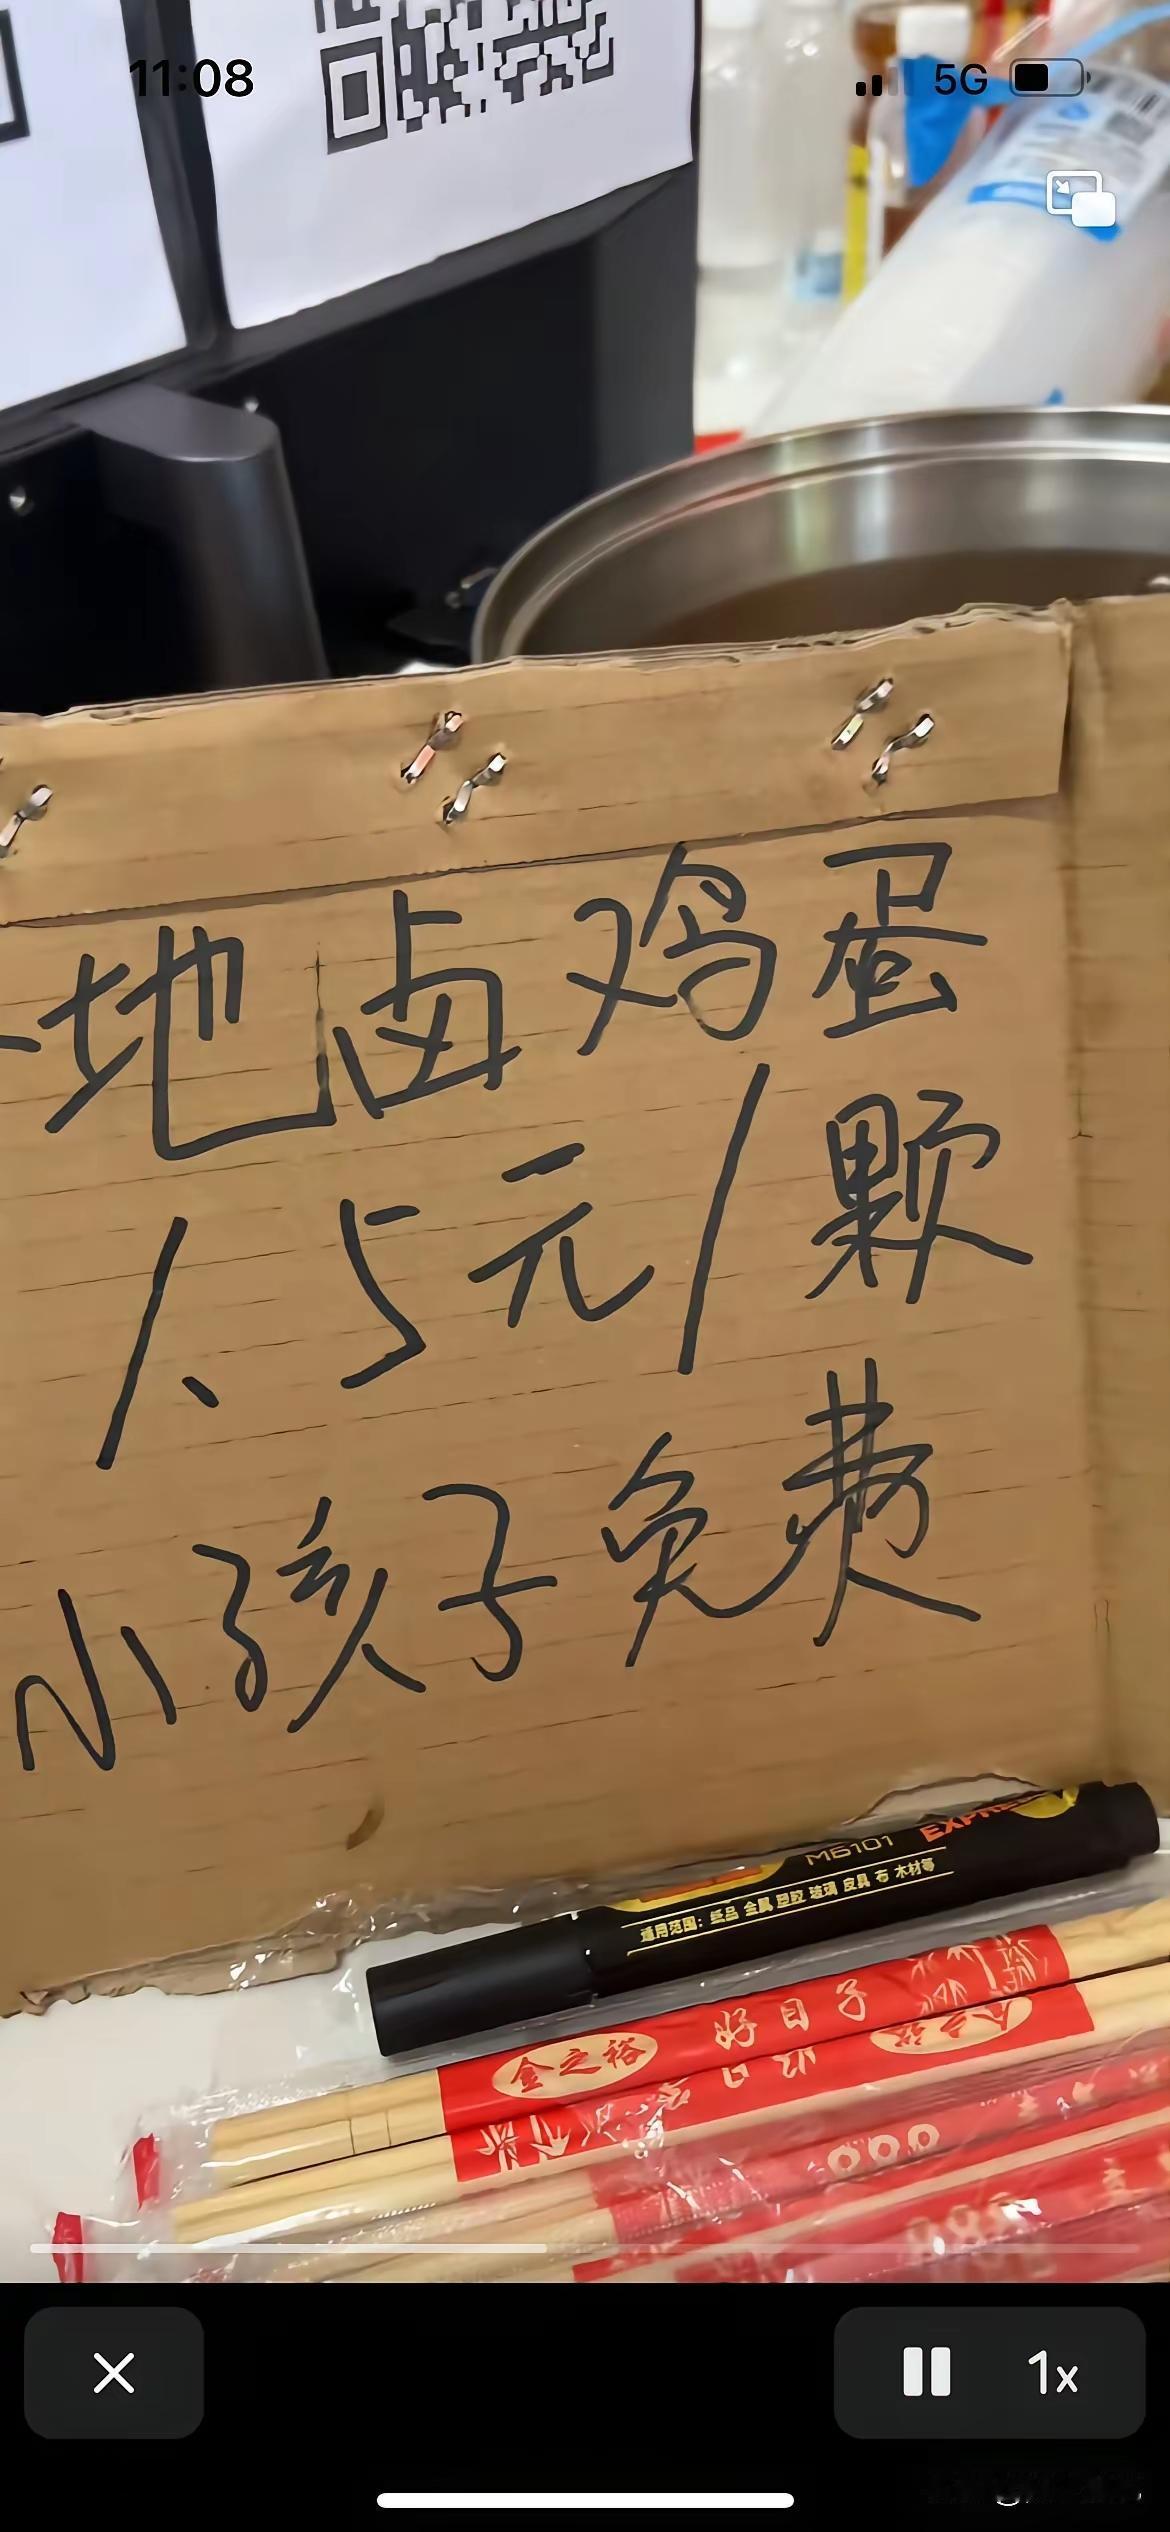 11:08 5G
地卤鸡蛋
1.5元/颗
小孩子免费
M6101 EXPRE
通用范围：纸品 金属 塑胶 玻璃 皮具 布 木材等
金之裕 好日子
1x